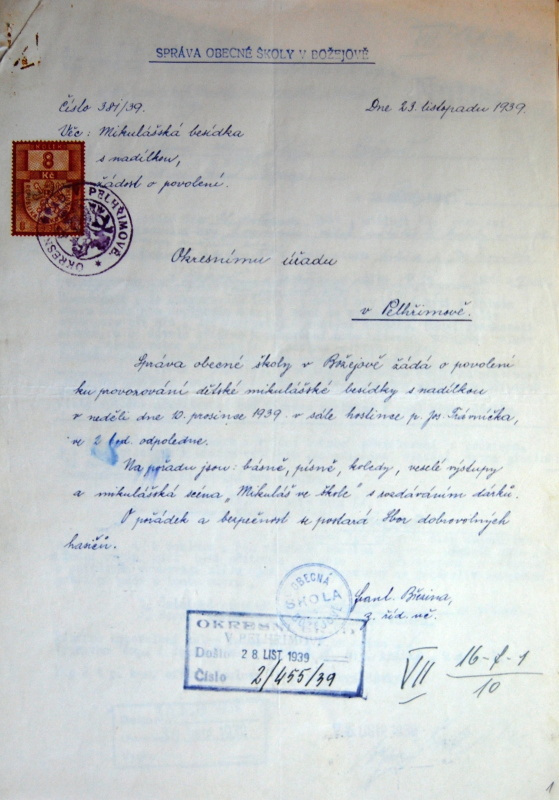 SPRÁVA OBECNÉ ŠKOLY V BOŽEJOVĚ
Číslo 381/39.
Dne 23. listopadu 1939.
Věc: Mikulášská besídka
s nadílkou,
žádost o povolení.
8
Kč
OKRESNÍ PELHŘIMOVĚ
Okresnímu úřadu
v Pelhřimově.
Správa obecné školy v Božejově žádá o povolení
ku provozování dětské mikulášské besídky s nadílkou
v neděli dne 10. prosince 1939 v sále hostince p. Jos. Trávníčka,
ve 2 hod. odpoledne.
Na pořadu jsou: básně, písně, koledy, veselé výstupy
a mikulášská scéna „Mikuláš ve škole" s rozdáváním dárků.
O pořádek a bezpečnost se postará Sbor dobrovolných
hasičů.
OBECNÁ
ŠKOLA
Frant. Březina,
z. říd. uč.
OKRESNÍ
V PELHŘIMOVĚ
Došlo 28. LIST 1939
Číslo 2/455/39
VII 16-7-1
10
1